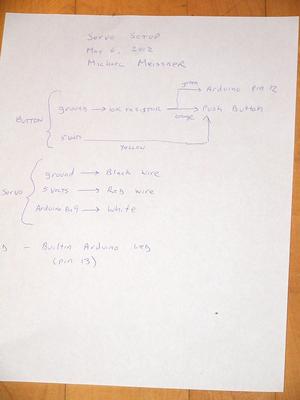 Servo Setup
May 6, 2012
Michael Meissner
green Arduino pin 12
BUTTON ground → 10K resistor → Push Button
orange
5 volts
YELLOW
ground → Black wire
Servo 5 volts → Red wire
Arduino Pin 9 → White
- Builtin Arduino LED
(pin 13)